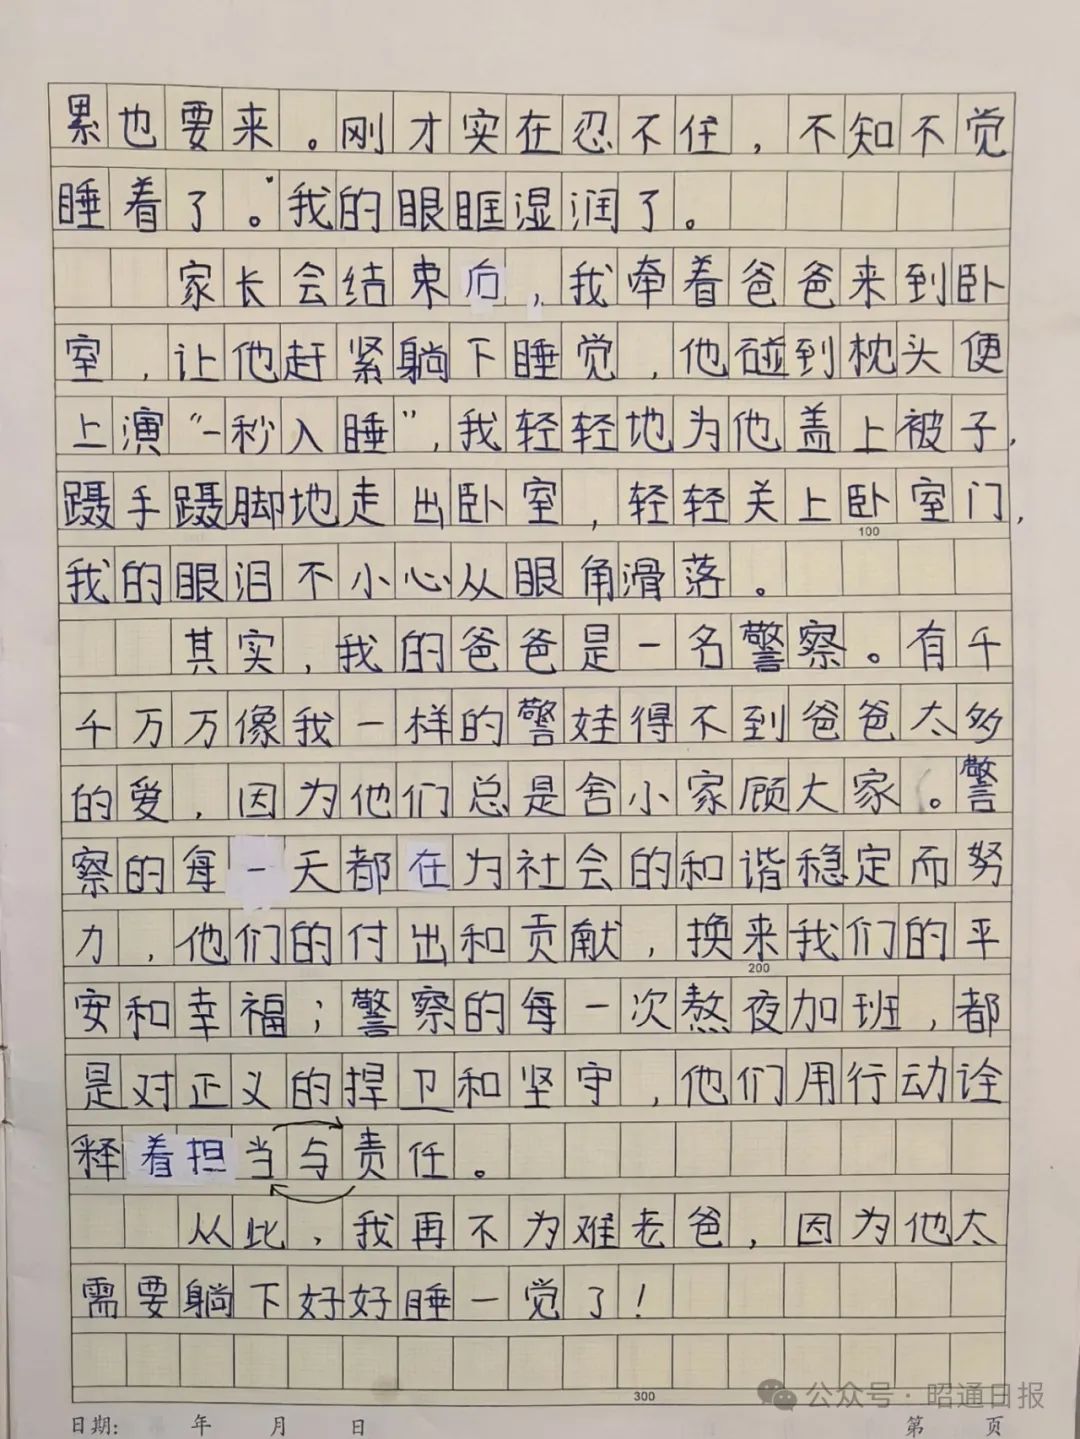 累也要来。刚才实在忍不住，不知不觉
睡着了。我的眼眶湿润了。
家长会结束后，我牵着爸爸来到卧
室，让他赶紧躺下睡觉，他碰到枕头便
上演“一秒入睡”，我轻轻地为他盖上被子，
蹑手蹑脚地走出卧室，轻轻关上卧室门，
100
我的眼泪不小心从眼角滑落。
其实，我的爸爸是一名警察。有千
千万万像我一样的警娃得不到爸爸太多
的爱，因为他们总是舍小家顾大家。警
察的每一天都在为社会的和谐稳定而努
力，他们的付出和贡献，换来我们的平
200
安和幸福；警察的每一次熬夜加班，都
是对正义的捍卫和坚守，他们用行动诠
释着担当与责任。
从此，我再不为难老爸，因为他太
需要躺下好好睡一觉了！
300
日期： 年 月 日 第 页
公众号·昭通日报